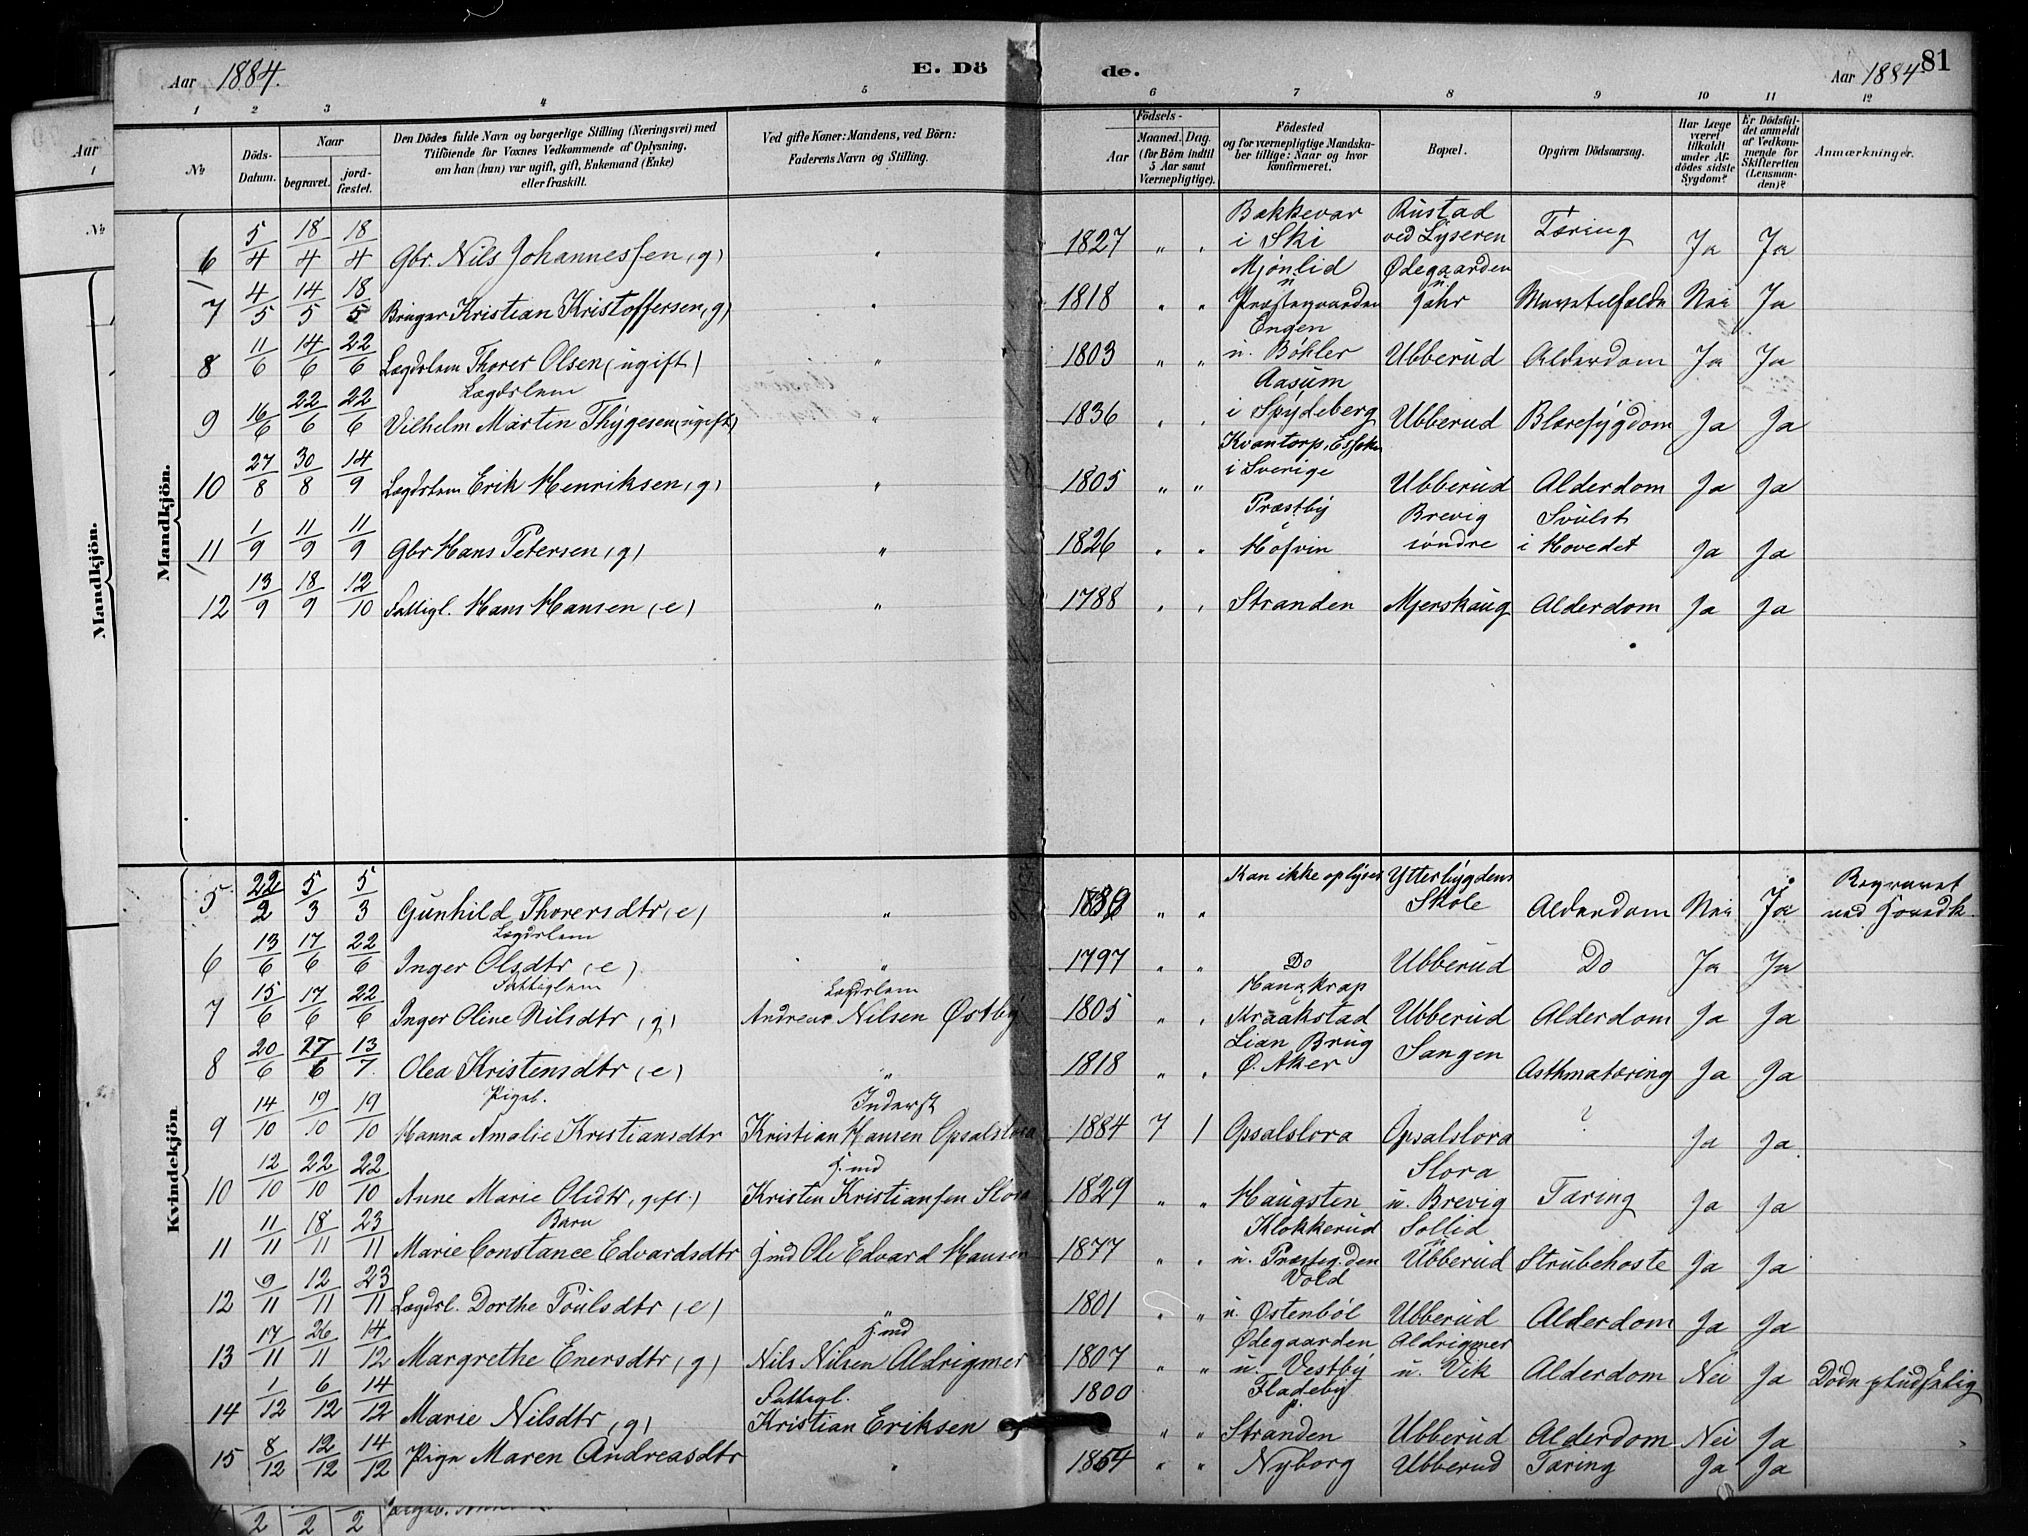 Aar 1884. E. Dö de. Aar 1884 81
1 2 3 4 5 6 7 8 9 10 11 12
No
Döds-Datum.
Naar
begravet.
jord-fæstet.
Den Dödes fulde Navn og borgerlige Stilling (Næringsvei) med
Tilföiende for Voxnes Vedkommende af Oplysning,
om han (hun) var ugift, gift, Enkemand (Enke)
eller fraskilt.
Ved gifte Koner: Mandens, ved Börn:
Faderens Navn og Stilling.
Födsels-
Aar
Maaned. Dag.
(for Börn indtil
5 Aar samt
Værnepligtige).
Födested
og for værnepligtige Mandska-
ber tillige: Naar og hvor
konfirmeret.
Bopæl.
Opgiven Dödsaarsag.
Har Læge
været
tilkaldt
under Af-
dödes sidste
Sygdom?
Er Dödsfal-
det anmeldt
af Vedkom-
mende for
Skifteretten
(Lensman-
den)?
Anmærkninger.
Mandkjön.
6 5/4 18/4 18/4 Gbr. Nils Johannessen (g) " 1827 " " Bækkevar i Ski Rustad ved Lyseren Tæring Ja Ja
7 4/5 14/5 18/5 Bruger Kristian Kristoffersen (g) " 1818 " " Mjönlid u Præstegaarden Ødegaarden u Jahr Mavetilfælde Nei Ja
8 11/6 14/6 22/6 Lægdslem Thorer Olsen (ugift) " 1803 " " Engen u. Böhler Ubberud Alderdom Ja Ja
9 16/6 22/6 22/6 Lægdslem Vilhelm Martin Thygesen (ugift) " 1836 " " Aasum i Spydeberg Ubberud Blæresygdom Ja Ja
10 27/8 30/8 14/9 Lægdslem Erik Henriksen (g) " 1805 " " Kvantorp, i Sverige Ubberud Alderdom Ja Ja
11 1/9 11/9 11/9 Gbr Hans Petersen (g) " 1826 " " Præstby Hofvin Brevig söndre Svulst i Hovedet Ja Ja
12 13/9 18/9 12/10 Fattigl. Hans Hansen (e) " 1788 " " Stranden Mjerskaug Alderdom Ja Ja
Kvindekjön.
5 22/2 5/3 5/3 Gunhild Thorersdtr (e) " " " Kan ikke oplyses Ytterbygdens Skole Alderdom Nei Ja Begravet ved Hovedk.
6 13/6 17/6 22/6 Lægdslem Inger Olsdtr (e) " 1797 " " Do Ubberud Do Ja Ja
7 15/6 17/6 22/6 Fattiglem Inger Oline Nilsdtr (g) Lægdslem Andreas Nilsen Østby 1805 " " Kraakstad Ubberud Alderdom Ja Ja
8 20/6 27/6 13/7 Olea Kristensdtr (e) " 1818 " " Lian Brug Ø. Aker Sangen Asthmatæring Ja Ja
9 14/10 19/10 19/10 Pigeb. Hanna Amalie Kristiansdtr Inderst Kristian Hansen Opsalslora 1884 7 1 Opsalslora Opsalslora ? Ja Ja
10 12/10 22/10 22/10 Anne Marie Olsdtr (gift) Hmd Kristen Kristiansen Slora 1829 " " Haugsten Slora u. Brevig Tæring Ja Ja
11 11/11 18/11 23/11 Barn Marie Constance Edvardsdtr Hmd Ole Edvard Hansen 1877 " " Klokkerud u. Præsteg.den Sollid u Ubberud Strubehoste Ja Ja
12 9/11 12/11 23/11 Lægdsl. Dorthe Poulsdtr (e) " 1801 " " Vold u. Østenböl Ubberud Alderdom Ja Ja
13 17/11 26/11 14/12 Margrethe Enersdtr (g) Hmd Nils Nilsen Aldrigmer 1807 " " Ødegaarden u. Vestby Aldrigmer u. Vik Alderdom Nei Ja Döde pludselig
14 1/12 6/12 14/12 Marie Nilsdtr (g) Fattigl. Kristian Eriksen 1800 " " Fladeby p. Stranden Ubberud Alderdom Nei Ja
15 8/12 12/12 14/12 Pige Maren Andreasdtr " 1864 " " Nyborg Ubberud Tæring Ja Ja
Aar
1
No
Mandkjön.